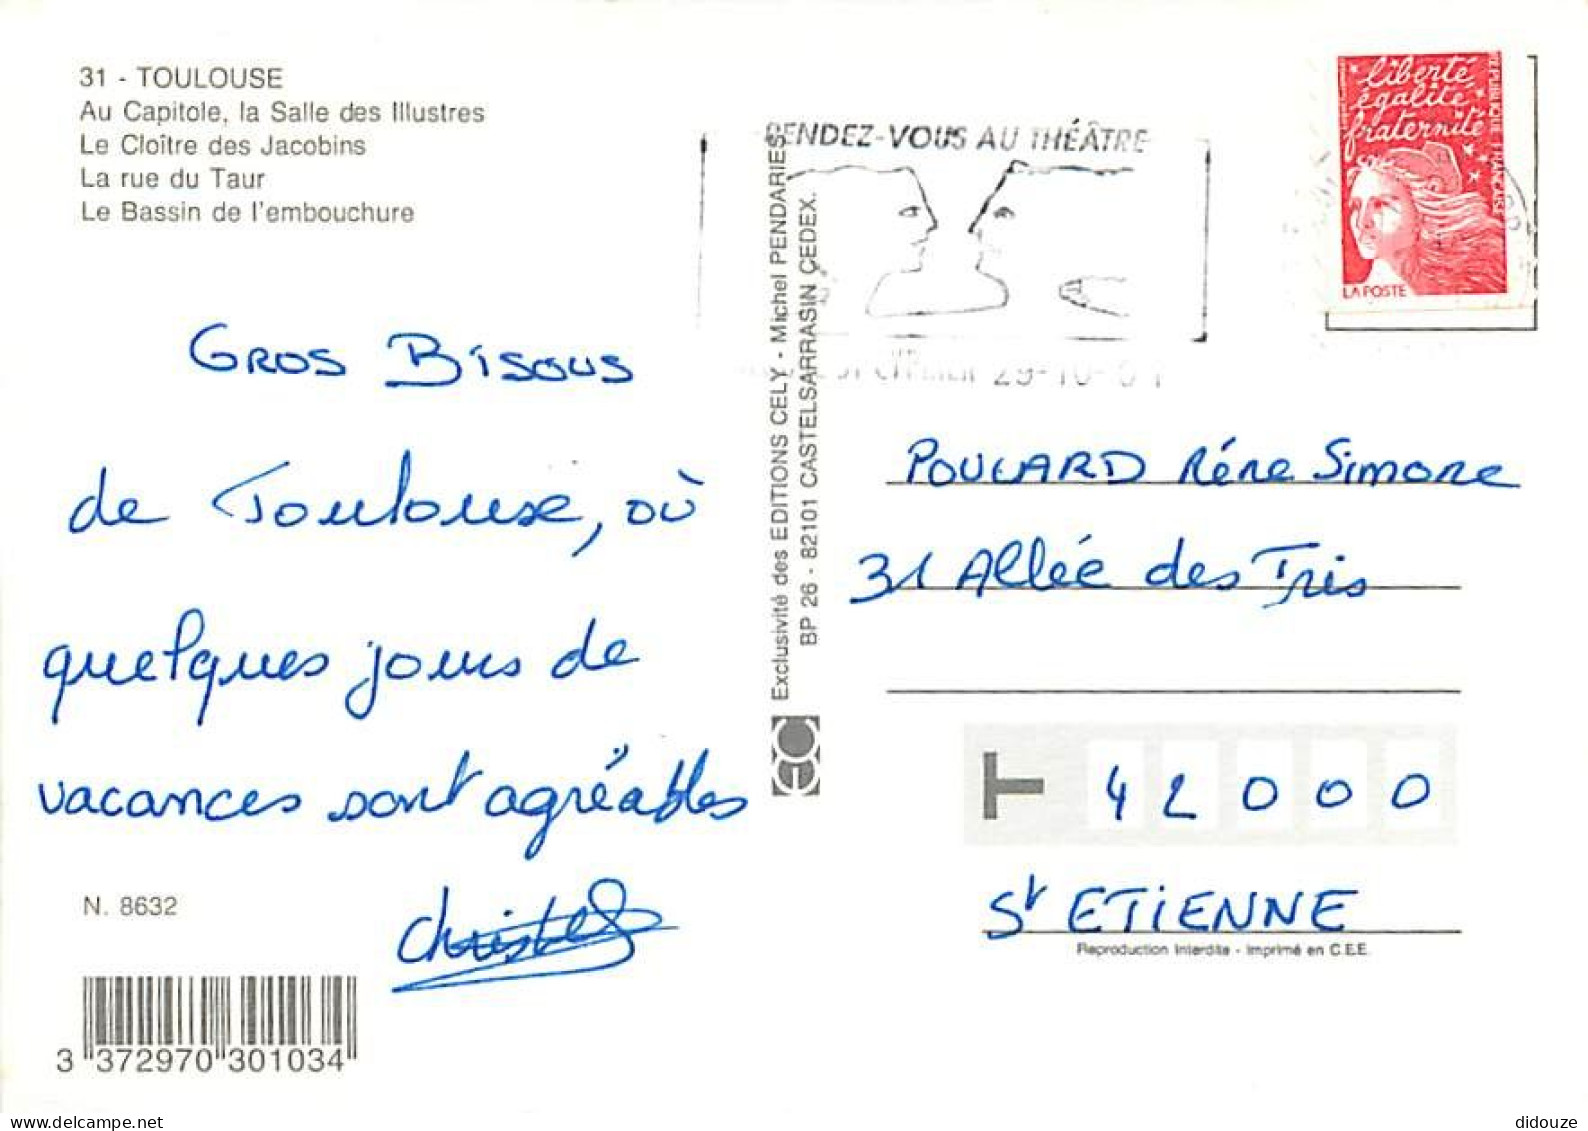 31 - TOULOUSE
Au Capitole, la Salle des Illustres
Le Cloître des Jacobins
La rue du Taur
Le Bassin de l'embouchure
RENDEZ-VOUS AU THÉÂTRE
29-10-01
liberté
égalité
fraternité
REPUBLIQUE FRANÇAISE
LA POSTE
GROS BISOUS
de Toulouse, où
quelques jours de
vacances sont agréables
Christel
N. 8632
3 372970 301034
Exclusivité des EDITIONS CELY - Michel PENDARIES
BP 26 - 82101 CASTELSARRASIN CEDEX.
POULARD Réne Simone
31 Allée des Iris
42000
St ETIENNE
Reproduction Interdite - Imprimé en C.E.E.
didouze